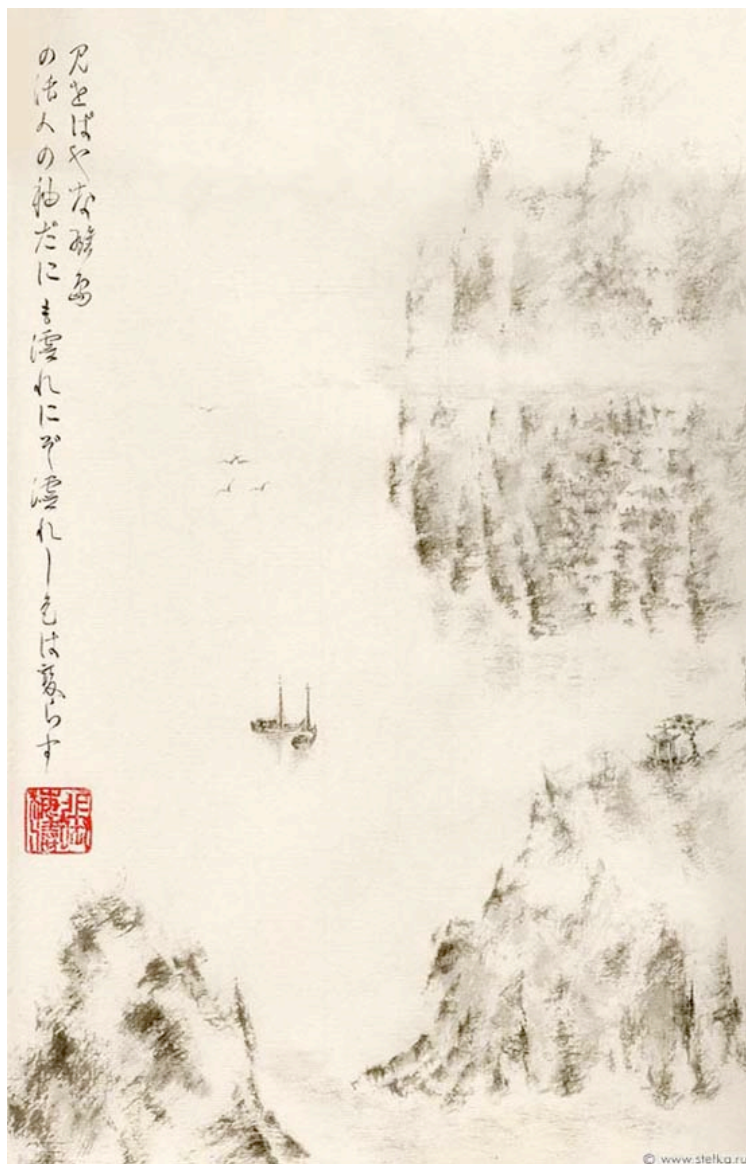 見せばやな雄島
の海人の袖だにも濡れにぞ濡れし色は変らす
© www.stelka.ru